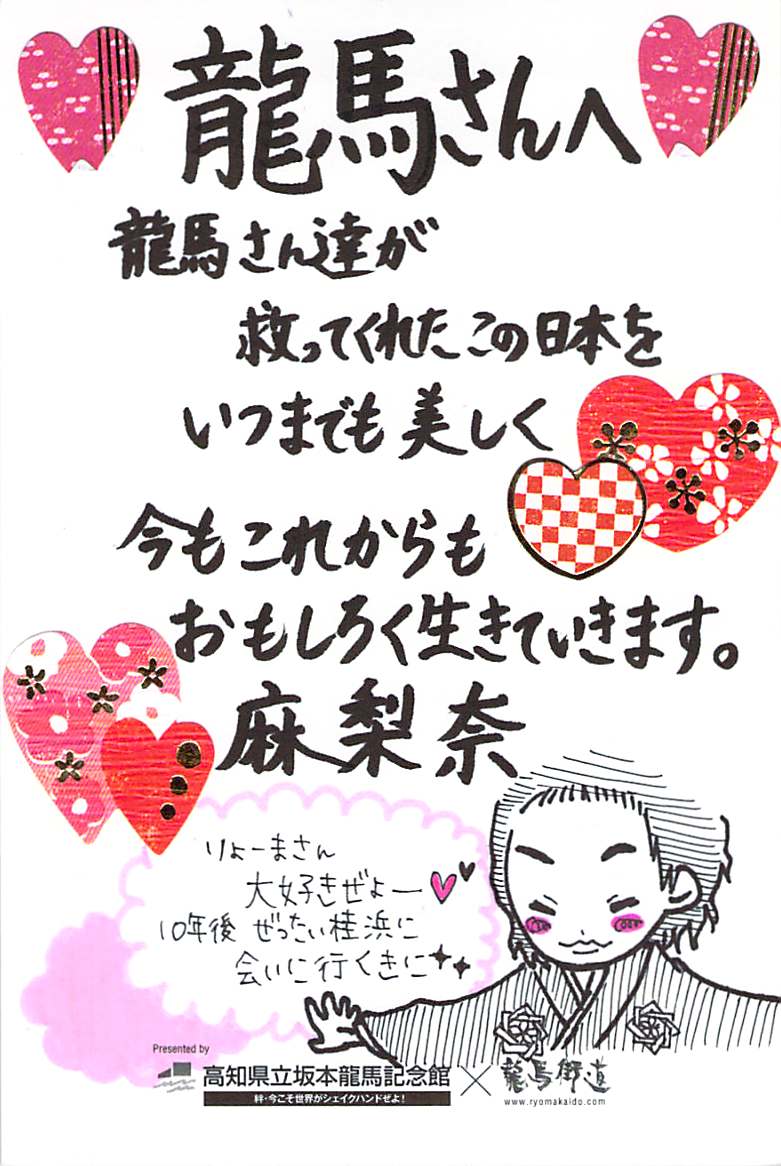 龍馬さんへ
龍馬さん達が
救ってくれたこの日本を
いつまでも美しく
今もこれからも
おもしろく生きていきます。
麻梨奈
りょーまさん
大好きぜよー
10年後 ぜったい桂浜に
会いに行くきに
Presented by
高知県立坂本龍馬記念館 × 龍馬街道
絆・今こそ世界がシェイクハンドぜよ!
www.ryomakaido.com